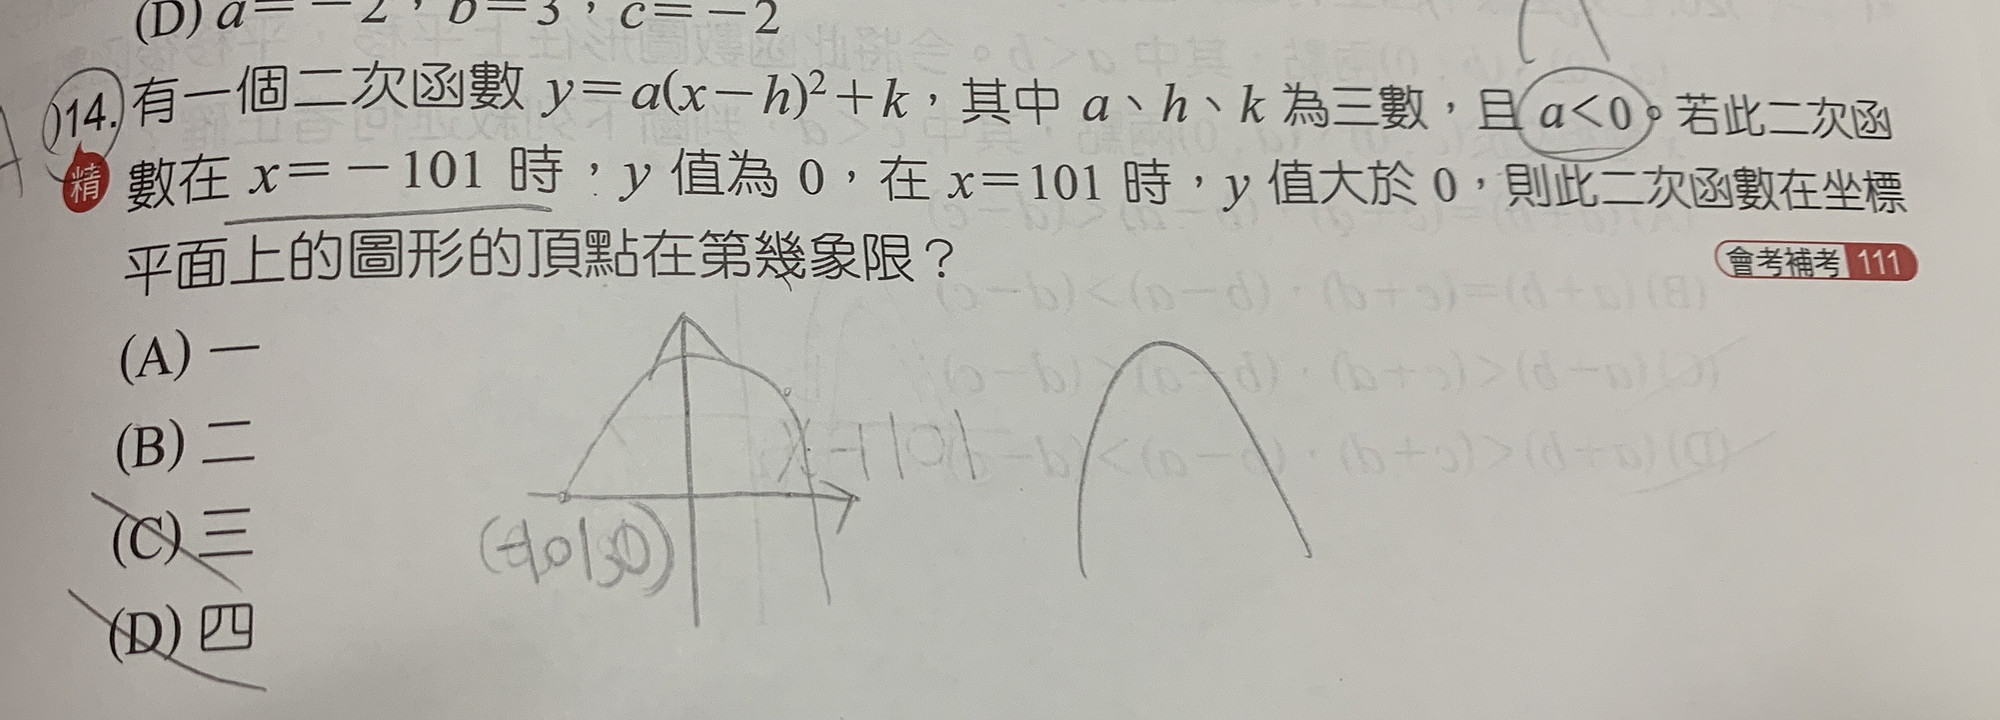 (D) a=－2，b=3，c=－2
14. 有一個二次函數 y=a(x－h)²+k，其中 a、h、k 為三數，且 a<0。若此二次函
精 數在 x=－101 時，y 值為 0，在 x=101 時，y 值大於 0，則此二次函數在坐標
平面上的圖形的頂點在第幾象限？
會考補考 111
(A) 一
(B) 二
(C) 三
(D) 四